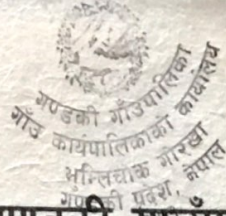 गण्डकी गाँउपालिका
गाँउ कार्यपालिकाको कार्यालय
भुम्लिचोक गोरखा
गण्डकी प्रदेश, नेपाल